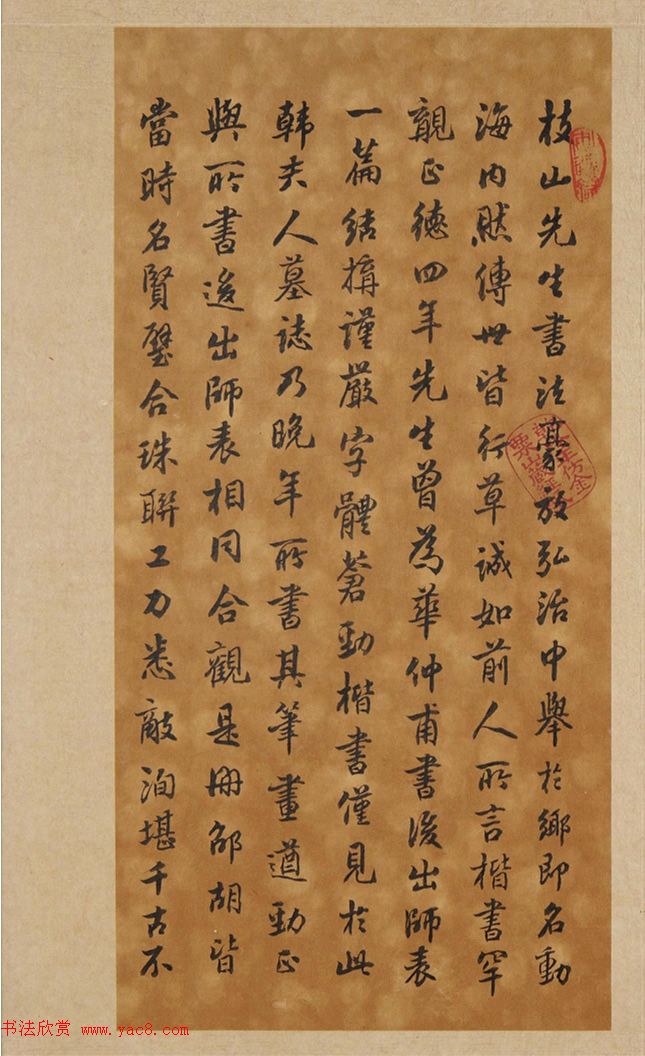 枝山先生書法豪放弘治中舉於鄉即名動
海內然傳世皆行草誠如前人所言楷書罕
覯正德四年先生曾為華仲甫書後出師表
一篇結搆謹嚴字體蒼勁楷書僅見於此
韓夫人墓誌乃晚年所書其筆畫遒勁正
與所書後出師表相同合觀是冊邵胡皆
當時名賢璧合珠聯工力悉敵洵堪千古不
书法欣赏 www.yac8.com